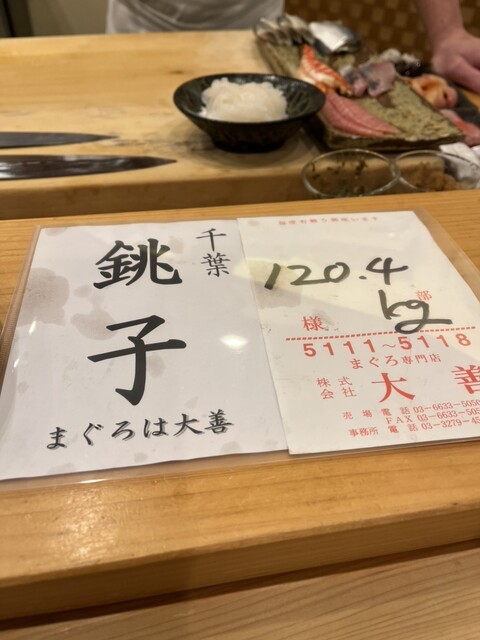 千葉
銚子
まぐろは大善
120.4
kg
部
様
5111～5118
まぐろ専門店
株式会社 大善
売場 電話 03-6633-5050
FAX 03-6633-505
事務所 電話 03-3279-45